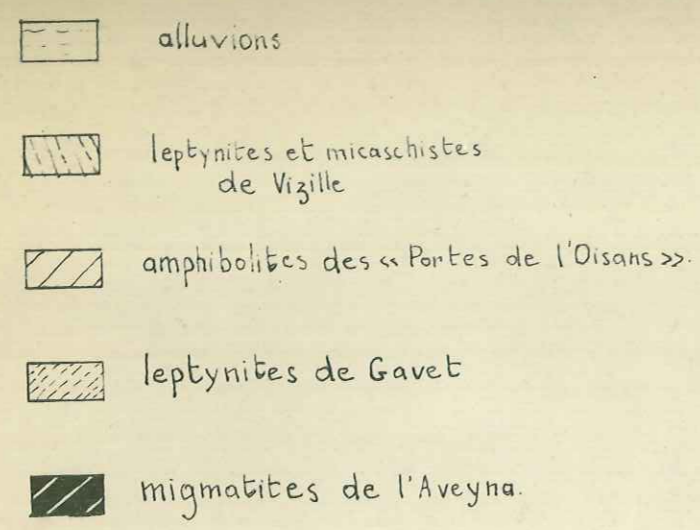 alluvions
leptynites et micaschistes
de Vizille
amphibolites des « Portes de l'Oisans ».
leptynites de Gavet
migmatites de l'Aveyna.